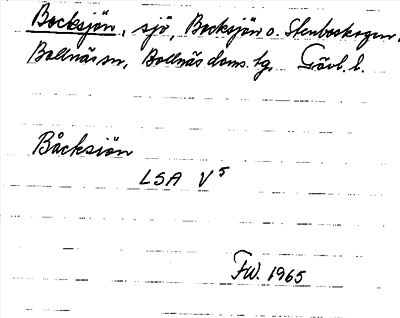 Bocksjön, sjö, Bocksjön o. Stenboskogen,
Bollnäs sn, Bollnäs doms. tg, Gävl. l.
Båcksiön
LSA V5
FW. 1965